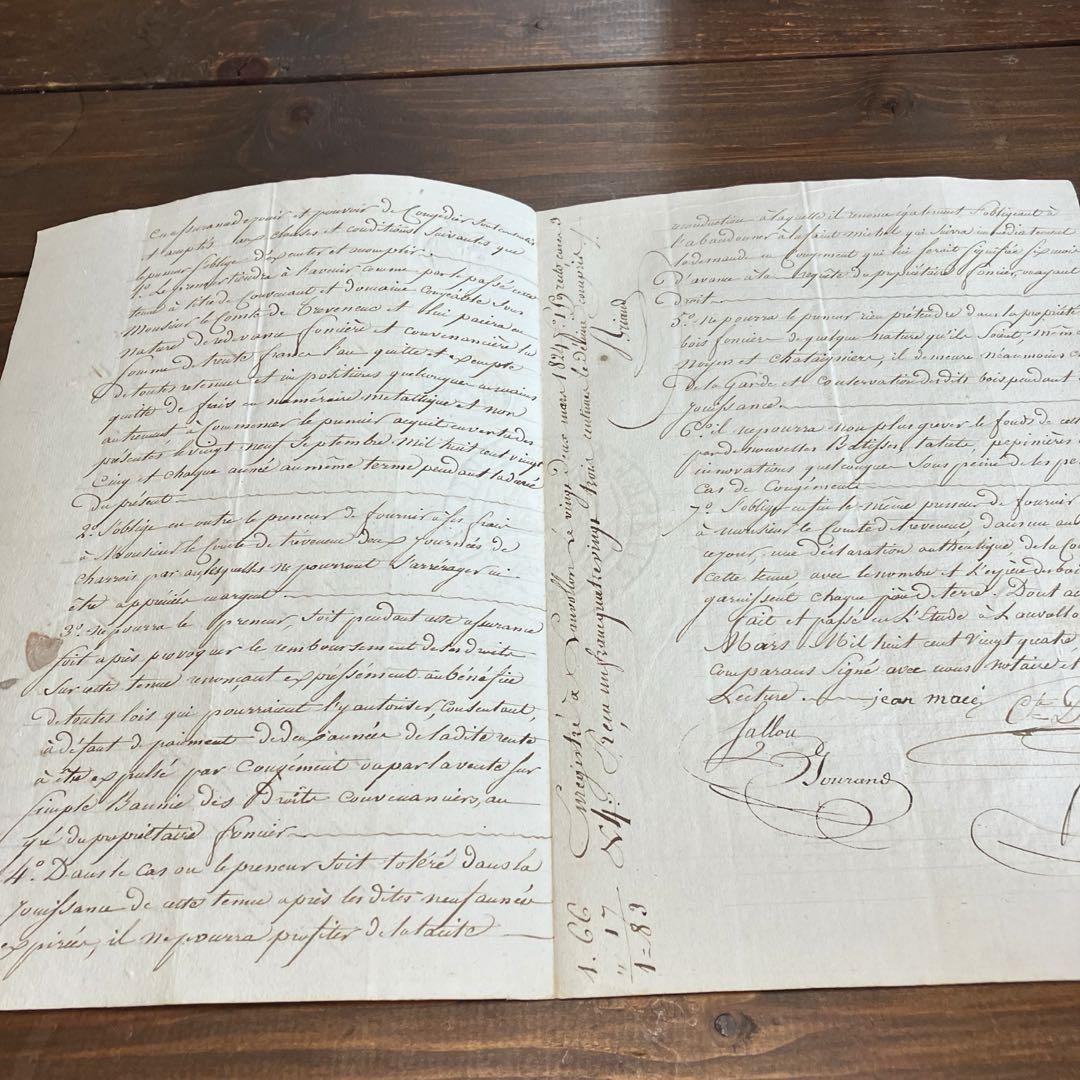 en assurance de jouir et pouvoir de Congédier sont entendus
et acceptés aux clauses et conditions suivantes que
le preneur s'oblige d'exécuter et accomplir
1º. Le preneur tiendra à l'avenir comme par le passé cette
tenue à titre de Convenant et domaine congéable sous
Monsieur le Comte de Treveneuc et lui paiera en
nature de redevance foncière et convenancière la
somme de trente francs l'an quitte et exempte
de toutes retenues et impositions quelconques
quitte de frais en numéraire métallique et non
autrement à commencer le premier acquit en vertu des
présentes le vingt neuf Septembre mil huit cent vingt
Cinq et chaque année au même terme pendant la durée
du présent
2º. S'oblige en outre le preneur de fournir à ses frais
à Monsieur le Comte de treveneuc deux journées de
Charrois par an, lesquelles ne pourront s'arrérager ni
être appréciées
3º. ne pourra le preneur, soit pendant cette assurance
soit après provoquer le remboursement des droits
sur cette tenue renonçant expressément au bénéfice
de toutes lois qui pourraient l'y autoriser, consentant,
à défaut de paiment de deux années de la dite rente
à être expulsé par Congément ou par la vente sur
simple Bannie des Droits convenanciers, au
gré du propriétaire foncier
4º. Dans le cas ou le preneur soit toléré dans la
jouissance de cette tenue après les dites neuf années
expirées, il ne pourra profiter de la tacite
Enregistré à Lanvollon le vingt deux mars 1824
Reçu un franc quatre vingt trois centimes le décime compris
Riand
1. 66
" 17
1=83
reconduction à laquelle il renonce également s'obligeant à
l'abandonner à la saint michel qui suivra immédiatement
la demande en Congément qui lui serait signifiée six mois
d'avance à la requête du propriétaire foncier, ou ayant
droit
5º. ne pourra le preneur rien prétendre dans la propriété
bois foncier de quelque nature qu'ils soient, même
noyers et chataigniers, il demeure néanmoins
de la Garde et conservation desdits bois pendant
jouissance
6º. il ne pourra non plus grever le fonds de cette
par de nouvelles Batisses, pépinières
innovations quelconques sous peine de les
cas de Congément
7º. S'oblige enfin le même preneur de fournir
à monsieur le Comte de treveneuc
ce jour, une déclaration authentique, de la
cette tenue avec le nombre et l'espèce des bois
garnissent chaque pièce de terre. Dont acte
fait et passé en L'Etude à Lanvollon
Mars Mil huit cent vingt quatre,
comparans signé avec nous notaire et
Lecture jean macé
Sallou
Gourand